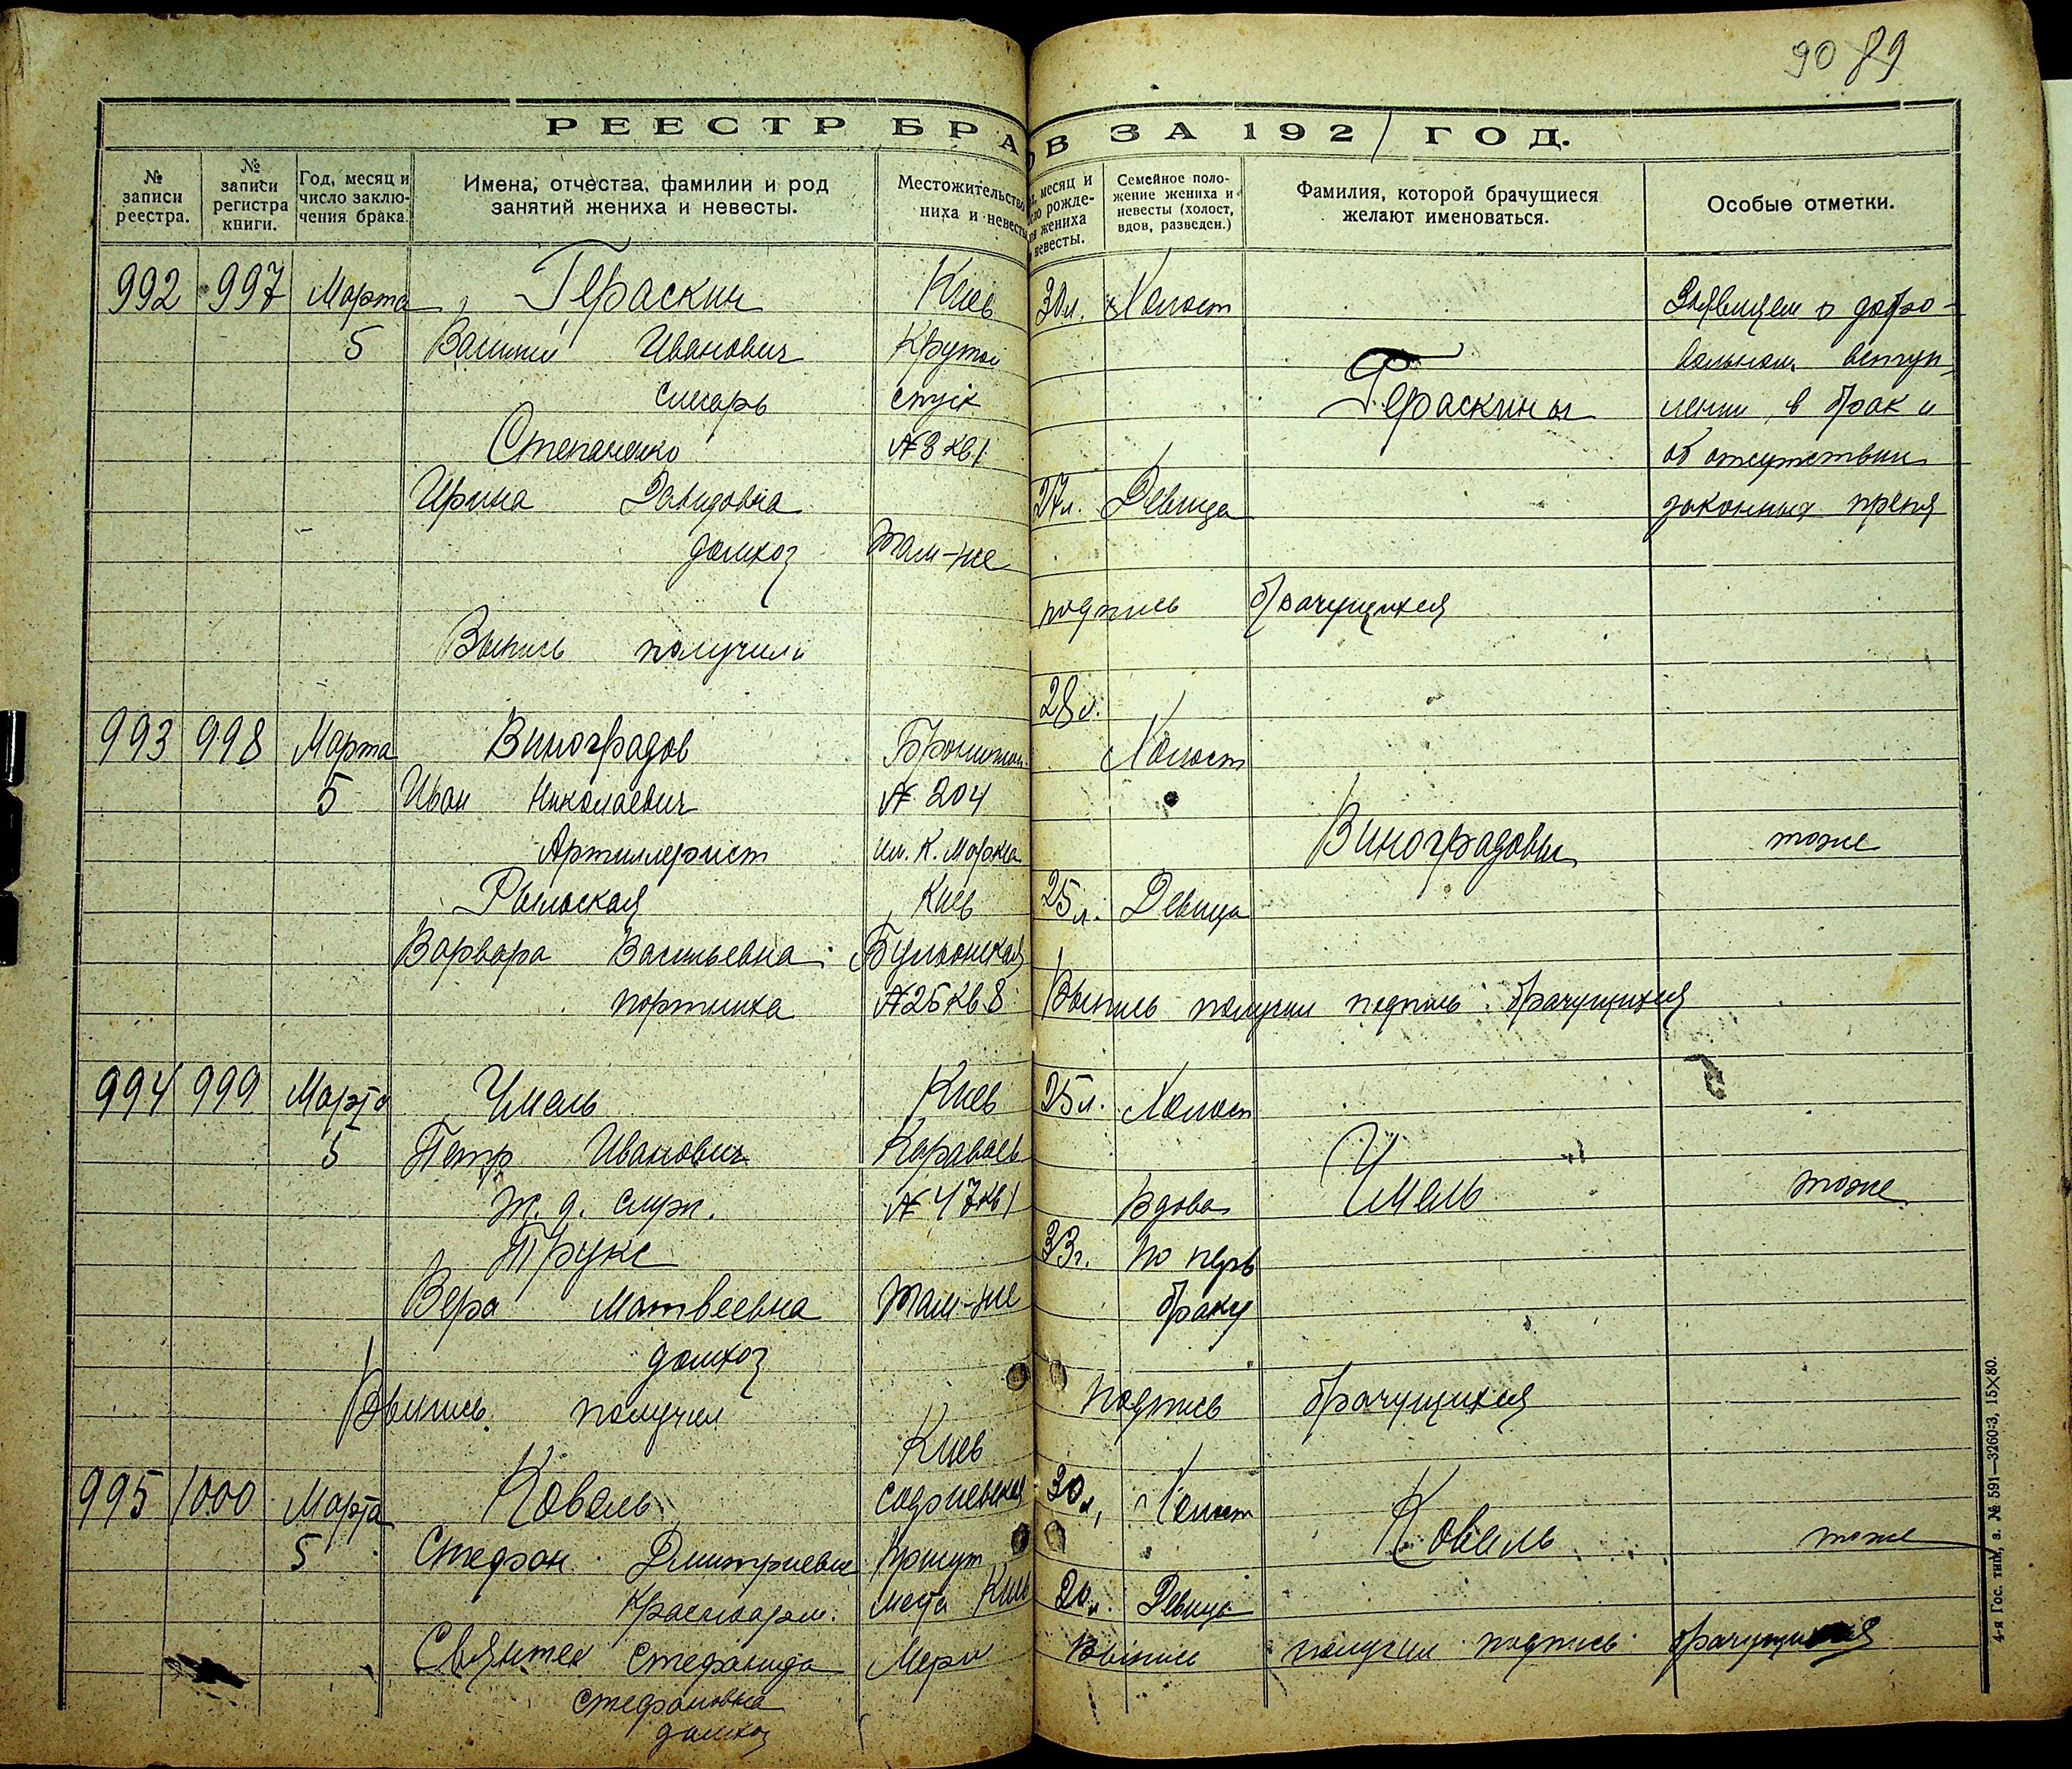 90 89
РЕЕСТР БРА ОВ ЗА 1921 ГОД.
№ записи реестра.
№ записи регистра книги.
Год, месяц и число заключения брака.
Имена, отчества, фамилии и род занятий жениха и невесты.
Местожительство ниха и невесты
месяц и рожде- жениха невесты.
Семейное положение жениха и невесты (холост, вдов, разведен.)
Фамилия, которой брачущиеся желают именоваться.
Особые отметки.
992 997 Марта Гераскин Киев 30 л. Холост Заявляем о добро-
5 Василий Иванович Крутой вольном вступ-
слесарь спуск Гераскины лении в брак и
Степаненко № 8 кв 1 об отсутствии
Ирина Давидовна 27 л. Девица законных препя
домхоз Там-же
подпись брачущихся
Выпись получили
28 л.
993 998 Марта Виноградов Холост
5 Иван Николаевич № 204
Артиллерист им. К. Маркса Виноградовы тоже
Рыльская Киев 25 л. Девица
Варвара Васильевна Бульонская
портниха № 25 кв 8 Выпись получил подпись брачущихся
994 999 Марта Чмель Киев 25 л. Холост
5 Петр Иванович Караваев Чмель тоже
ж. д. служ. № 47 кв 1 Вдова
Трукс 33 г. по перв
Вера Матвеевна Там-же браку
домхоз
Выпись получил подпись брачущихся
Киев
995 1000 Марта Коваль 30 л. Холост Коваль тоже
5 Стефан Дмитриевич
Красноарм. места Киев 20 л. Девица
Стефанида Выпись получил подпись брачущихся
Стефановна
домхоз
4-я Гос. тип., з. № 591—3260:3, 15×80.